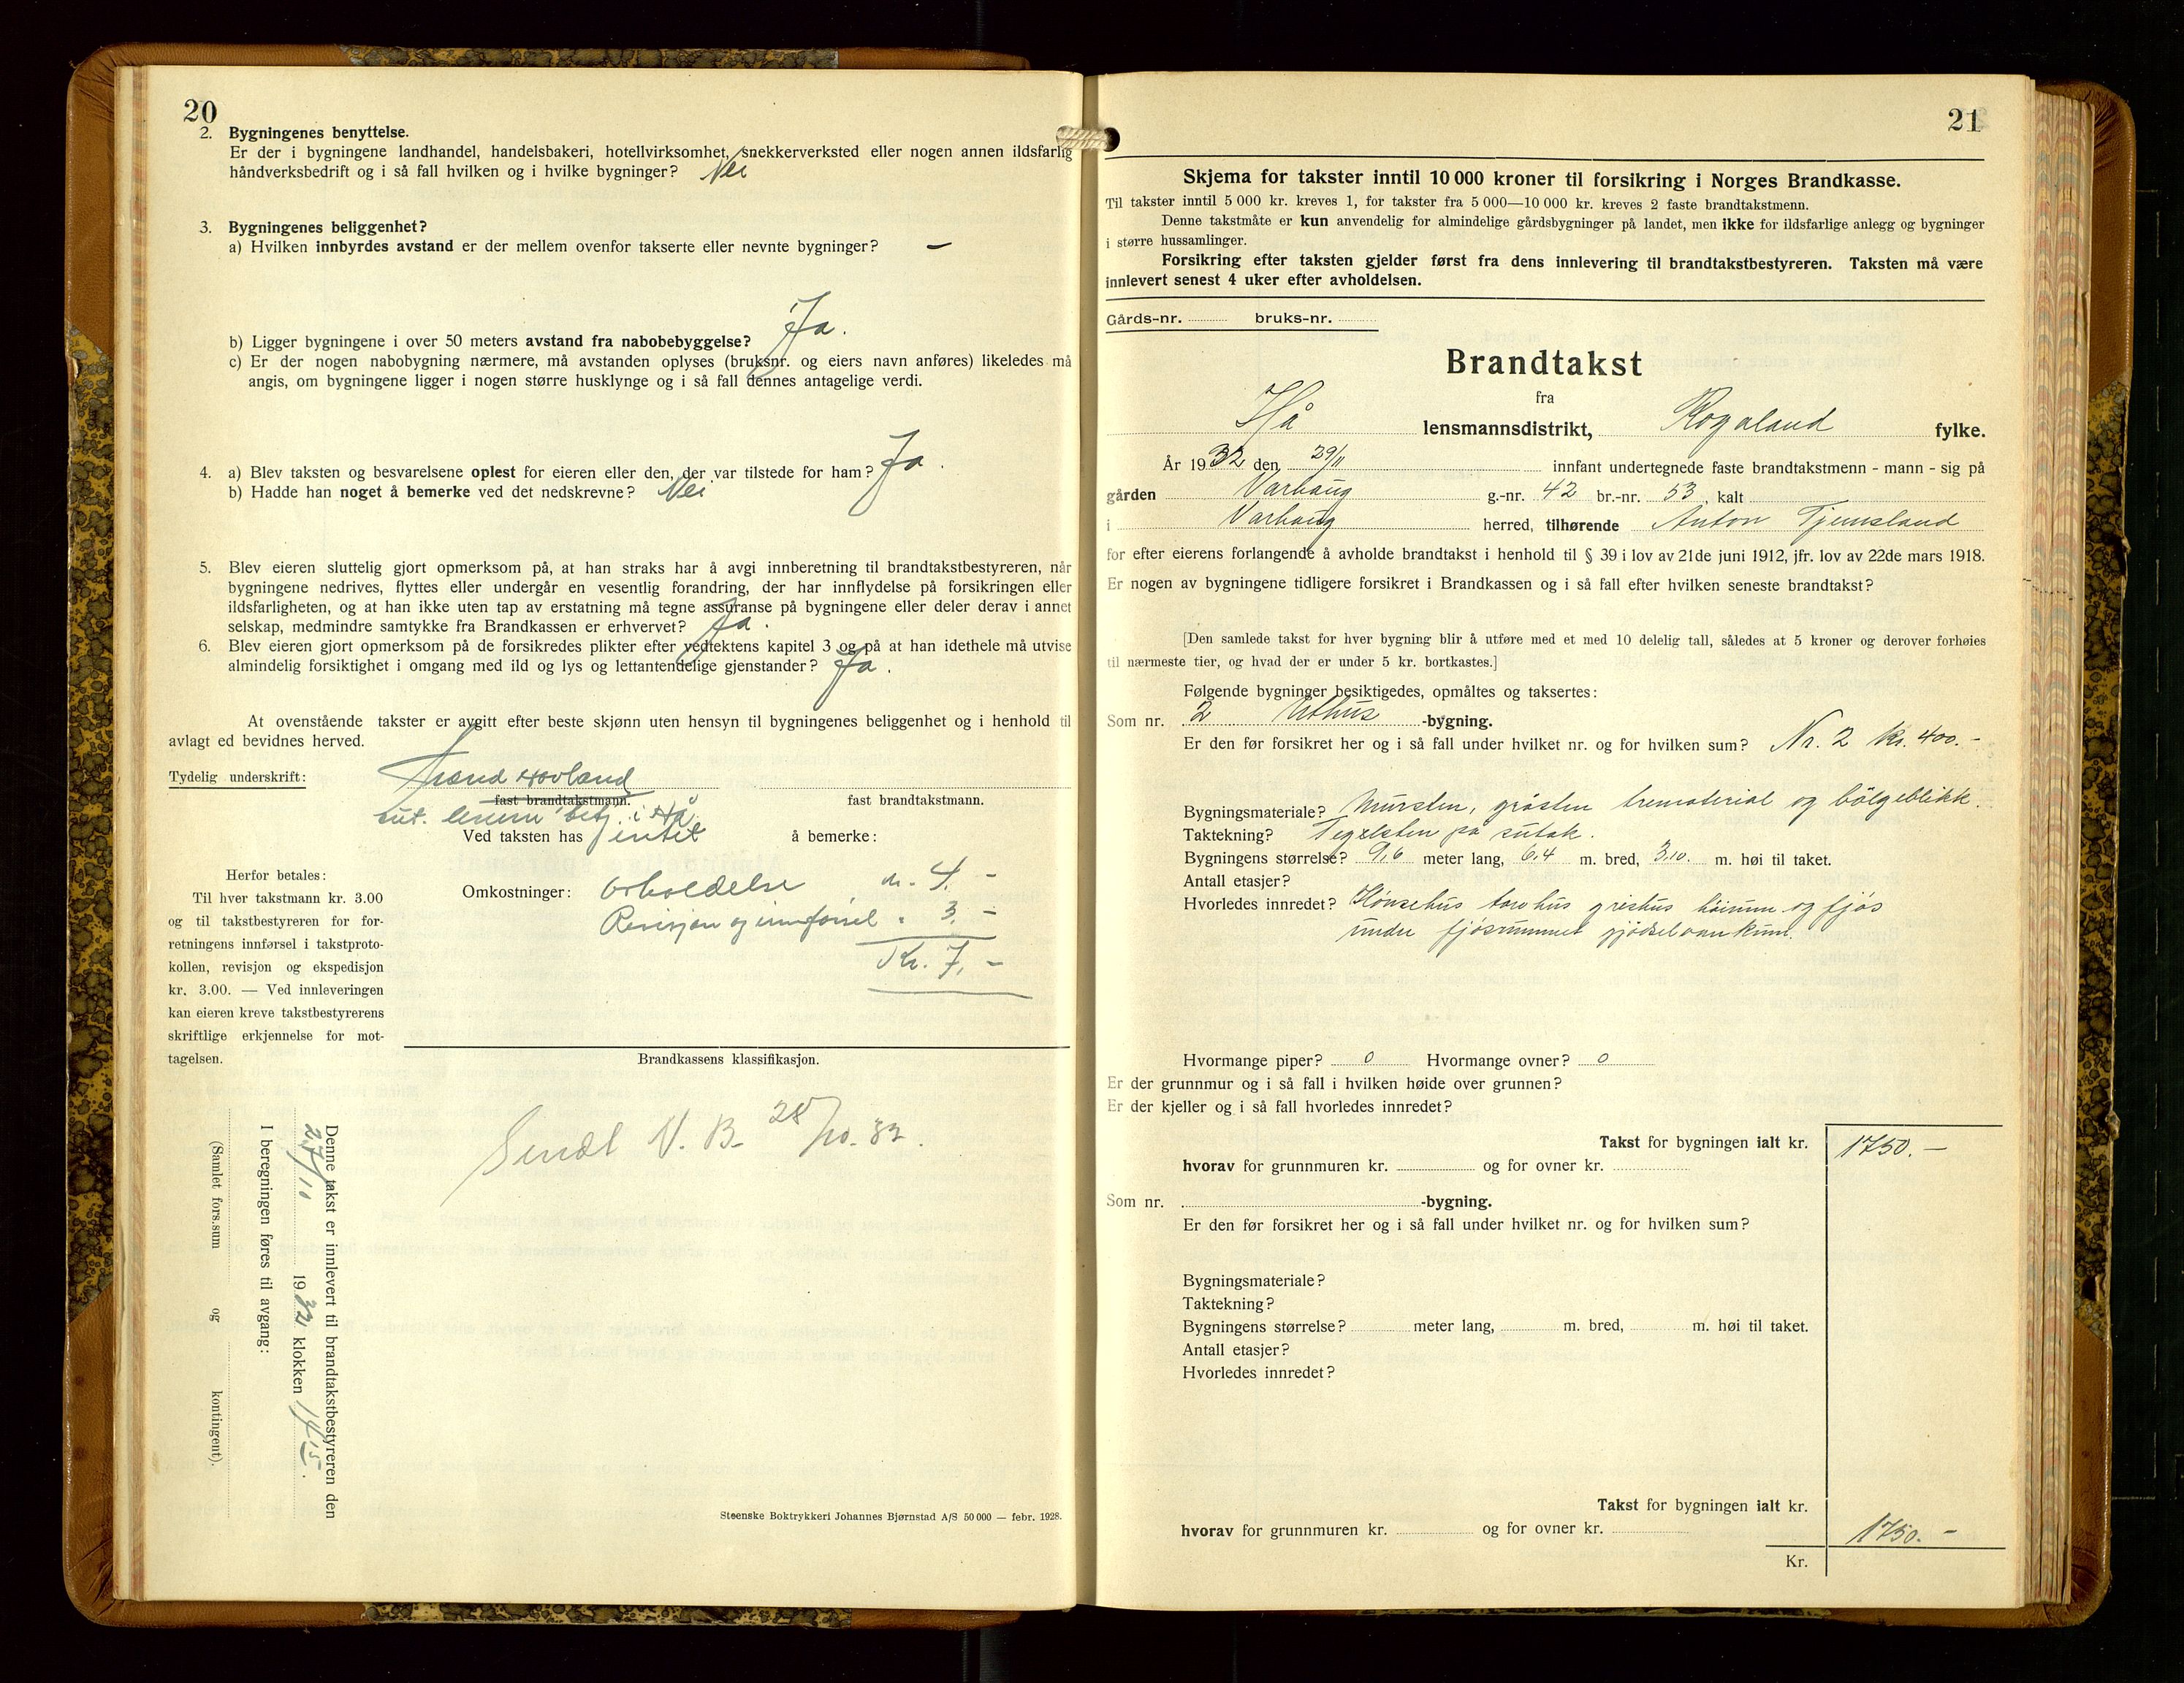 20
2. Bygningenes benyttelse.
Er der i bygningene landhandel, handelsbakeri, hotellvirksomhet, snekkerverksted eller nogen annen ildsfarlig
håndverksbedrift og i så fall hvilken og i hvilke bygninger? Nei
3. Bygningenes beliggenhet?
a) Hvilken innbyrdes avstand er der mellem ovenfor takserte eller nevnte bygninger? —
b) Ligger bygningene i over 50 meters avstand fra nabobebyggelse? Ja.
c) Er der nogen nabobygning nærmere, må avstanden oplyses (bruksnr. og eiers navn anføres) likeledes må
angis, om bygningene ligger i nogen større husklynge og i så fall dennes antagelige verdi.
4. a) Blev taksten og besvarelsene oplest for eieren eller den, der var tilstede for ham? Ja.
b) Hadde han noget å bemerke ved det nedskrevne? Nei.
5. Blev eieren sluttelig gjort opmerksom på, at han straks har å avgi innberetning til brandtakstbestyreren, når
bygningene nedrives, flyttes eller undergår en vesentlig forandring, der har innflydelse på forsikringen eller
ildsfarligheten, og at han ikke uten tap av erstatning må tegne assuranse på bygningene eller deler derav i annet
selskap, medmindre samtykke fra Brandkassen er erhvervet? Ja.
6. Blev eieren gjort opmerksom på de forsikredes plikter efter vedtektens kapitel 3 og på at han idethele må utvise
almindelig forsiktighet i omgang med ild og lys og lettantendelige gjenstander? Ja.
At ovenstående takster er avgitt efter beste skjønn uten hensyn til bygningenes beliggenhet og i henhold til
avlagt ed bevidnes herved.
Tydelig underskrift: Hovland
fast brandtakstmann. fast brandtakstmann.
betj. i Hå
Ved taksten has intet å bemerke:
Omkostninger: Avholdelse kr. 4. –
Revisjon og innførsel " 3. –
Kr. 7. –
Herfor betales:
Til hver takstmann kr. 3.00
og til takstbestyreren for for-
retningens innførsel i takstproto-
kollen, revisjon og ekspedisjon
kr. 3.00. — Ved innleveringen
kan eieren kreve takstbestyrerens
skriftlige erkjennelse for mot-
tagelsen.
Brandkassens klassifikasjon.
Sendt N. B. 28/10-32.
Denne takst er innlevert til brandtakstbestyreren den
27/10 1932 klokken 14 15.
I beregningen føres til avgang:
(Samlet fors.sum og kontingent).
Steenske Boktrykkeri Johannes Bjørnstad A/S 50 000 — febr. 1928.
21
Skjema for takster inntil 10 000 kroner til forsikring i Norges Brandkasse.
Til takster inntil 5 000 kr. kreves 1, for takster fra 5 000—10 000 kr. kreves 2 faste brandtakstmenn.
Denne takstmåte er kun anvendelig for almindelige gårdsbygninger på landet, men ikke for ildsfarlige anlegg og bygninger
i større hussamlinger.
Forsikring efter taksten gjelder først fra dens innlevering til brandtakstbestyreren. Taksten må være
innlevert senest 4 uker efter avholdelsen.
Gårds-nr. bruks-nr.
Brandtakst
fra
Hå lensmannsdistrikt, Rogaland fylke.
År 1932 den 29/11 innfant undertegnede faste brandtakstmenn - mann - sig på
gården Varhaug g.-nr. 42 br.-nr. 53, kalt
i Varhaug herred, tilhørende Anton Tjemsland
for efter eierens forlangende å avholde brandtakst i henhold til § 39 i lov av 21de juni 1912, jfr. lov av 22de mars 1918.
Er nogen av bygningene tidligere forsikret i Brandkassen og i så fall efter hvilken seneste brandtakst?
[Den samlede takst for hver bygning blir å utføre med et med 10 delelig tall, således at 5 kroner og derover forhøies
til nærmeste tier, og hvad der er under 5 kr. bortkastes.]
Følgende bygninger besiktigedes, opmåltes og taksertes:
Som nr. 2 Uthus -bygning.
Er den før forsikret her og i så fall under hvilket nr. og for hvilken sum? Nr. 2 kr. 400.-
Bygningsmateriale? Mursten, gråsten trematerial og bölgeblikk.
Taktekning? Teglsten på sutak.
Bygningens størrelse? 9,6 meter lang, 6,4 m. bred, 3,10. m. høi til taket.
Antall etasjer?
Hvorledes innredet? Hönsehus torvhus grishus höirum og fjös
under fjösrummet gjödselvankum.
Hvormange piper? 0 Hvormange ovner? 0
Er der grunnmur og i så fall i hvilken høide over grunnen?
Er der kjeller og i så fall hvorledes innredet?
Takst for bygningen ialt kr. 1750.–
hvorav for grunnmuren kr. og for ovner kr.
Som nr. -bygning.
Er den før forsikret her og i så fall under hvilket nr. og for hvilken sum?
Bygningsmateriale?
Taktekning?
Bygningens størrelse? meter lang, m. bred, m. høi til taket.
Antall etasjer?
Hvorledes innredet?
Takst for bygningen ialt kr.
hvorav for grunnmuren kr. og for ovner kr.
1750.–
Kr.